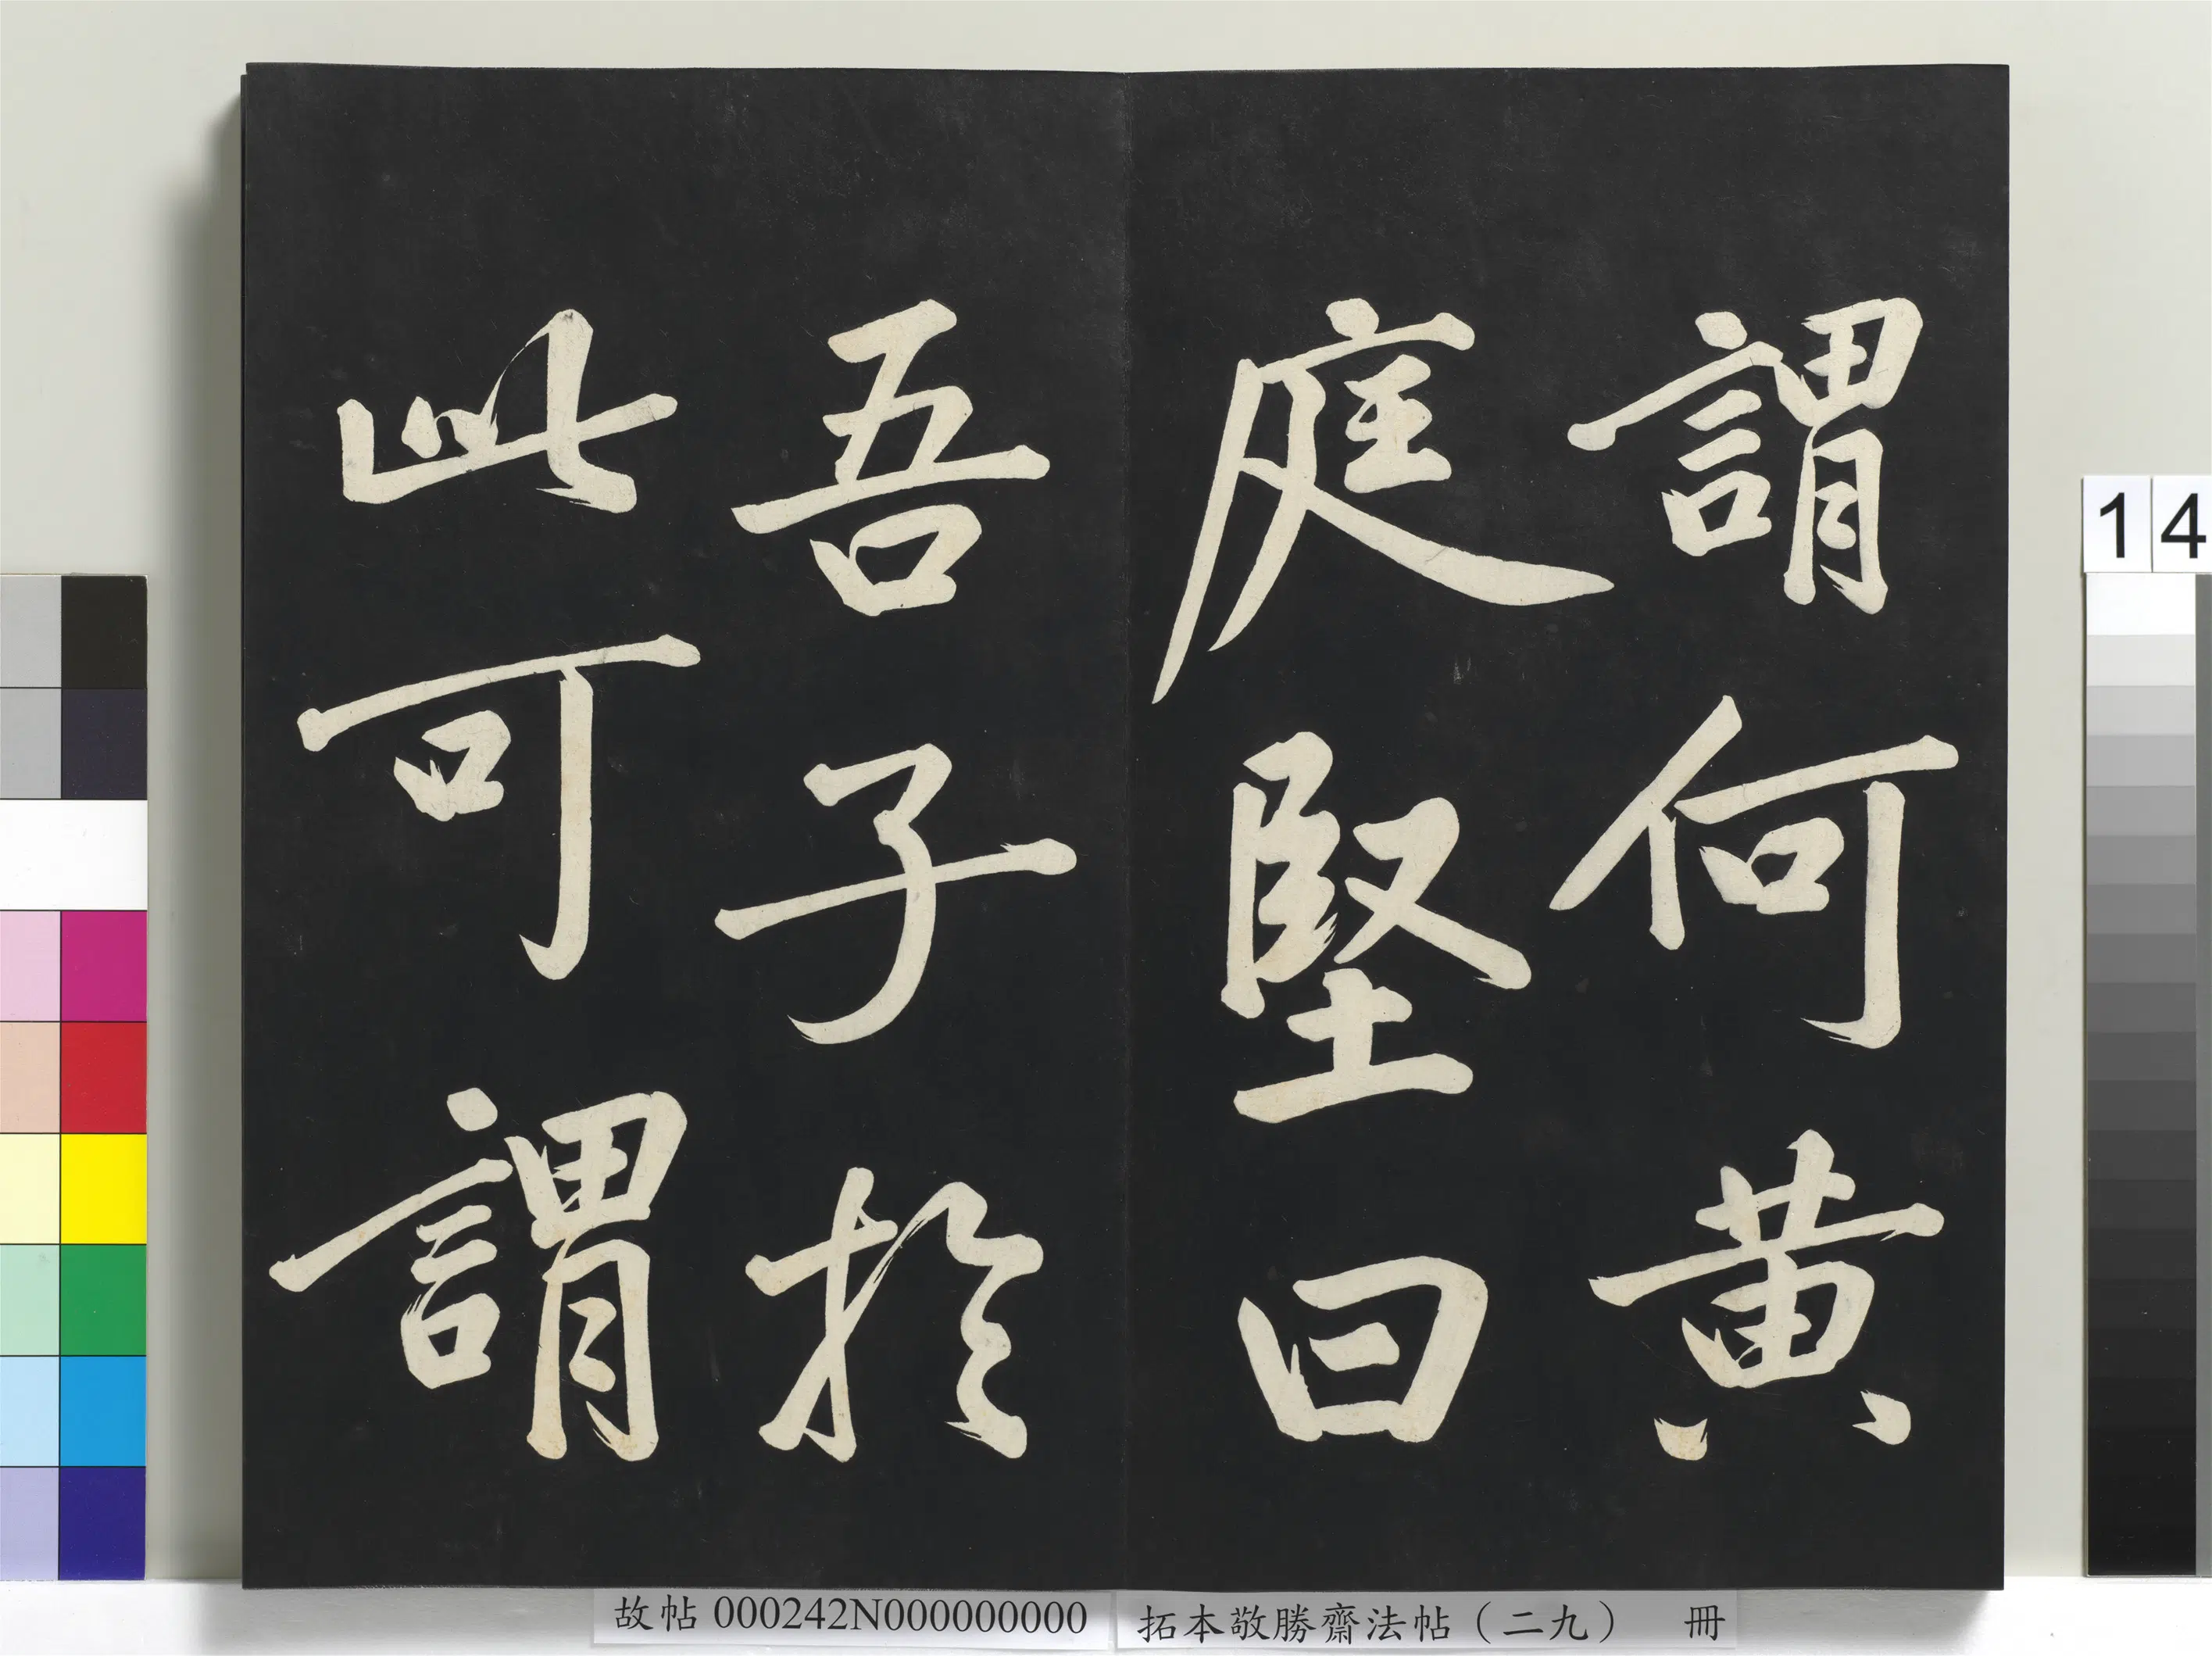 謂何黃
庭堅曰
吾子於
此可謂
14
故帖 000242N000000000
拓本敬勝齋法帖（二九） 冊